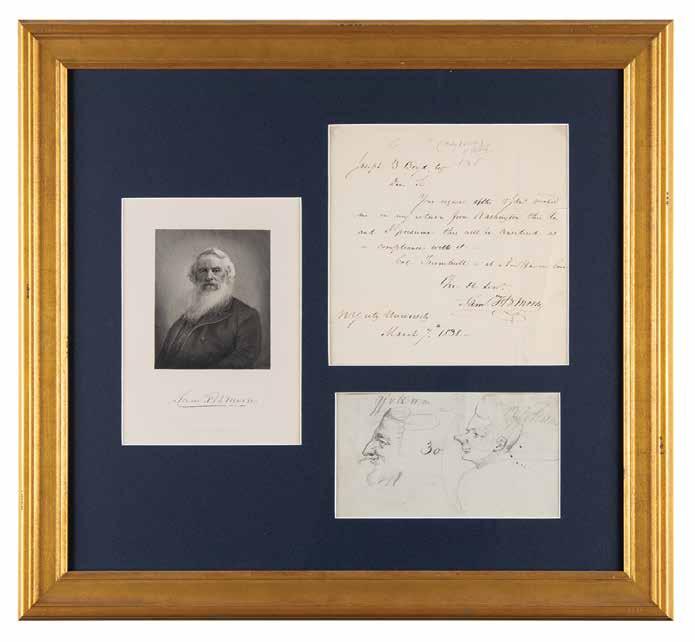 Joseph B. Boyd, Esq
Dear Sir
Your request of the 9th inst. reached
me on my return from Washington this
and I presume this will be considered as
a compliance with it.
Col. Trumbull is at New Haven Conn
Yr. Ob. Servt.
Saml. F. B. Morse
N Y City University
March 7th 1838
Saml. F. B. Morse
30